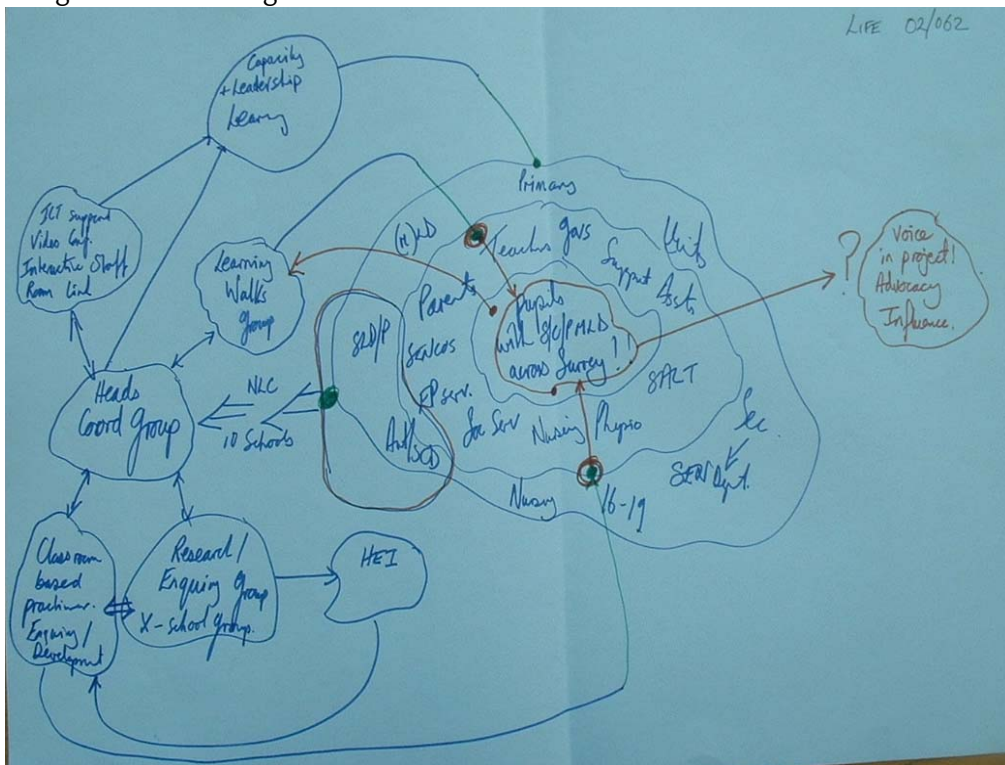 LIFE 02/062
Capacity
+ Leadership
Learning
ICT support
Video Conf.
Interactive Staff
Room Link
Learning
Walks
Group
Heads
Coord Group
NLC
10 Schools
Classroom
based
practitioner.
Enquiry /
Development
Research /
Enquiry Group
X-school group.
HEI
Primary
(M)LD
Teachers
Govs
Support
Assts
Units
Parents
SLD/P
SENCOS
EP serv.
Aut/SCD
Soc Serv
Nursing
Physio
SALT
Sec.
SEN Dept.
Nursery
16-19
Pupils
with S/C/PMLD
across Surrey!!
?
Voice
in project!
Advocacy
Influence.